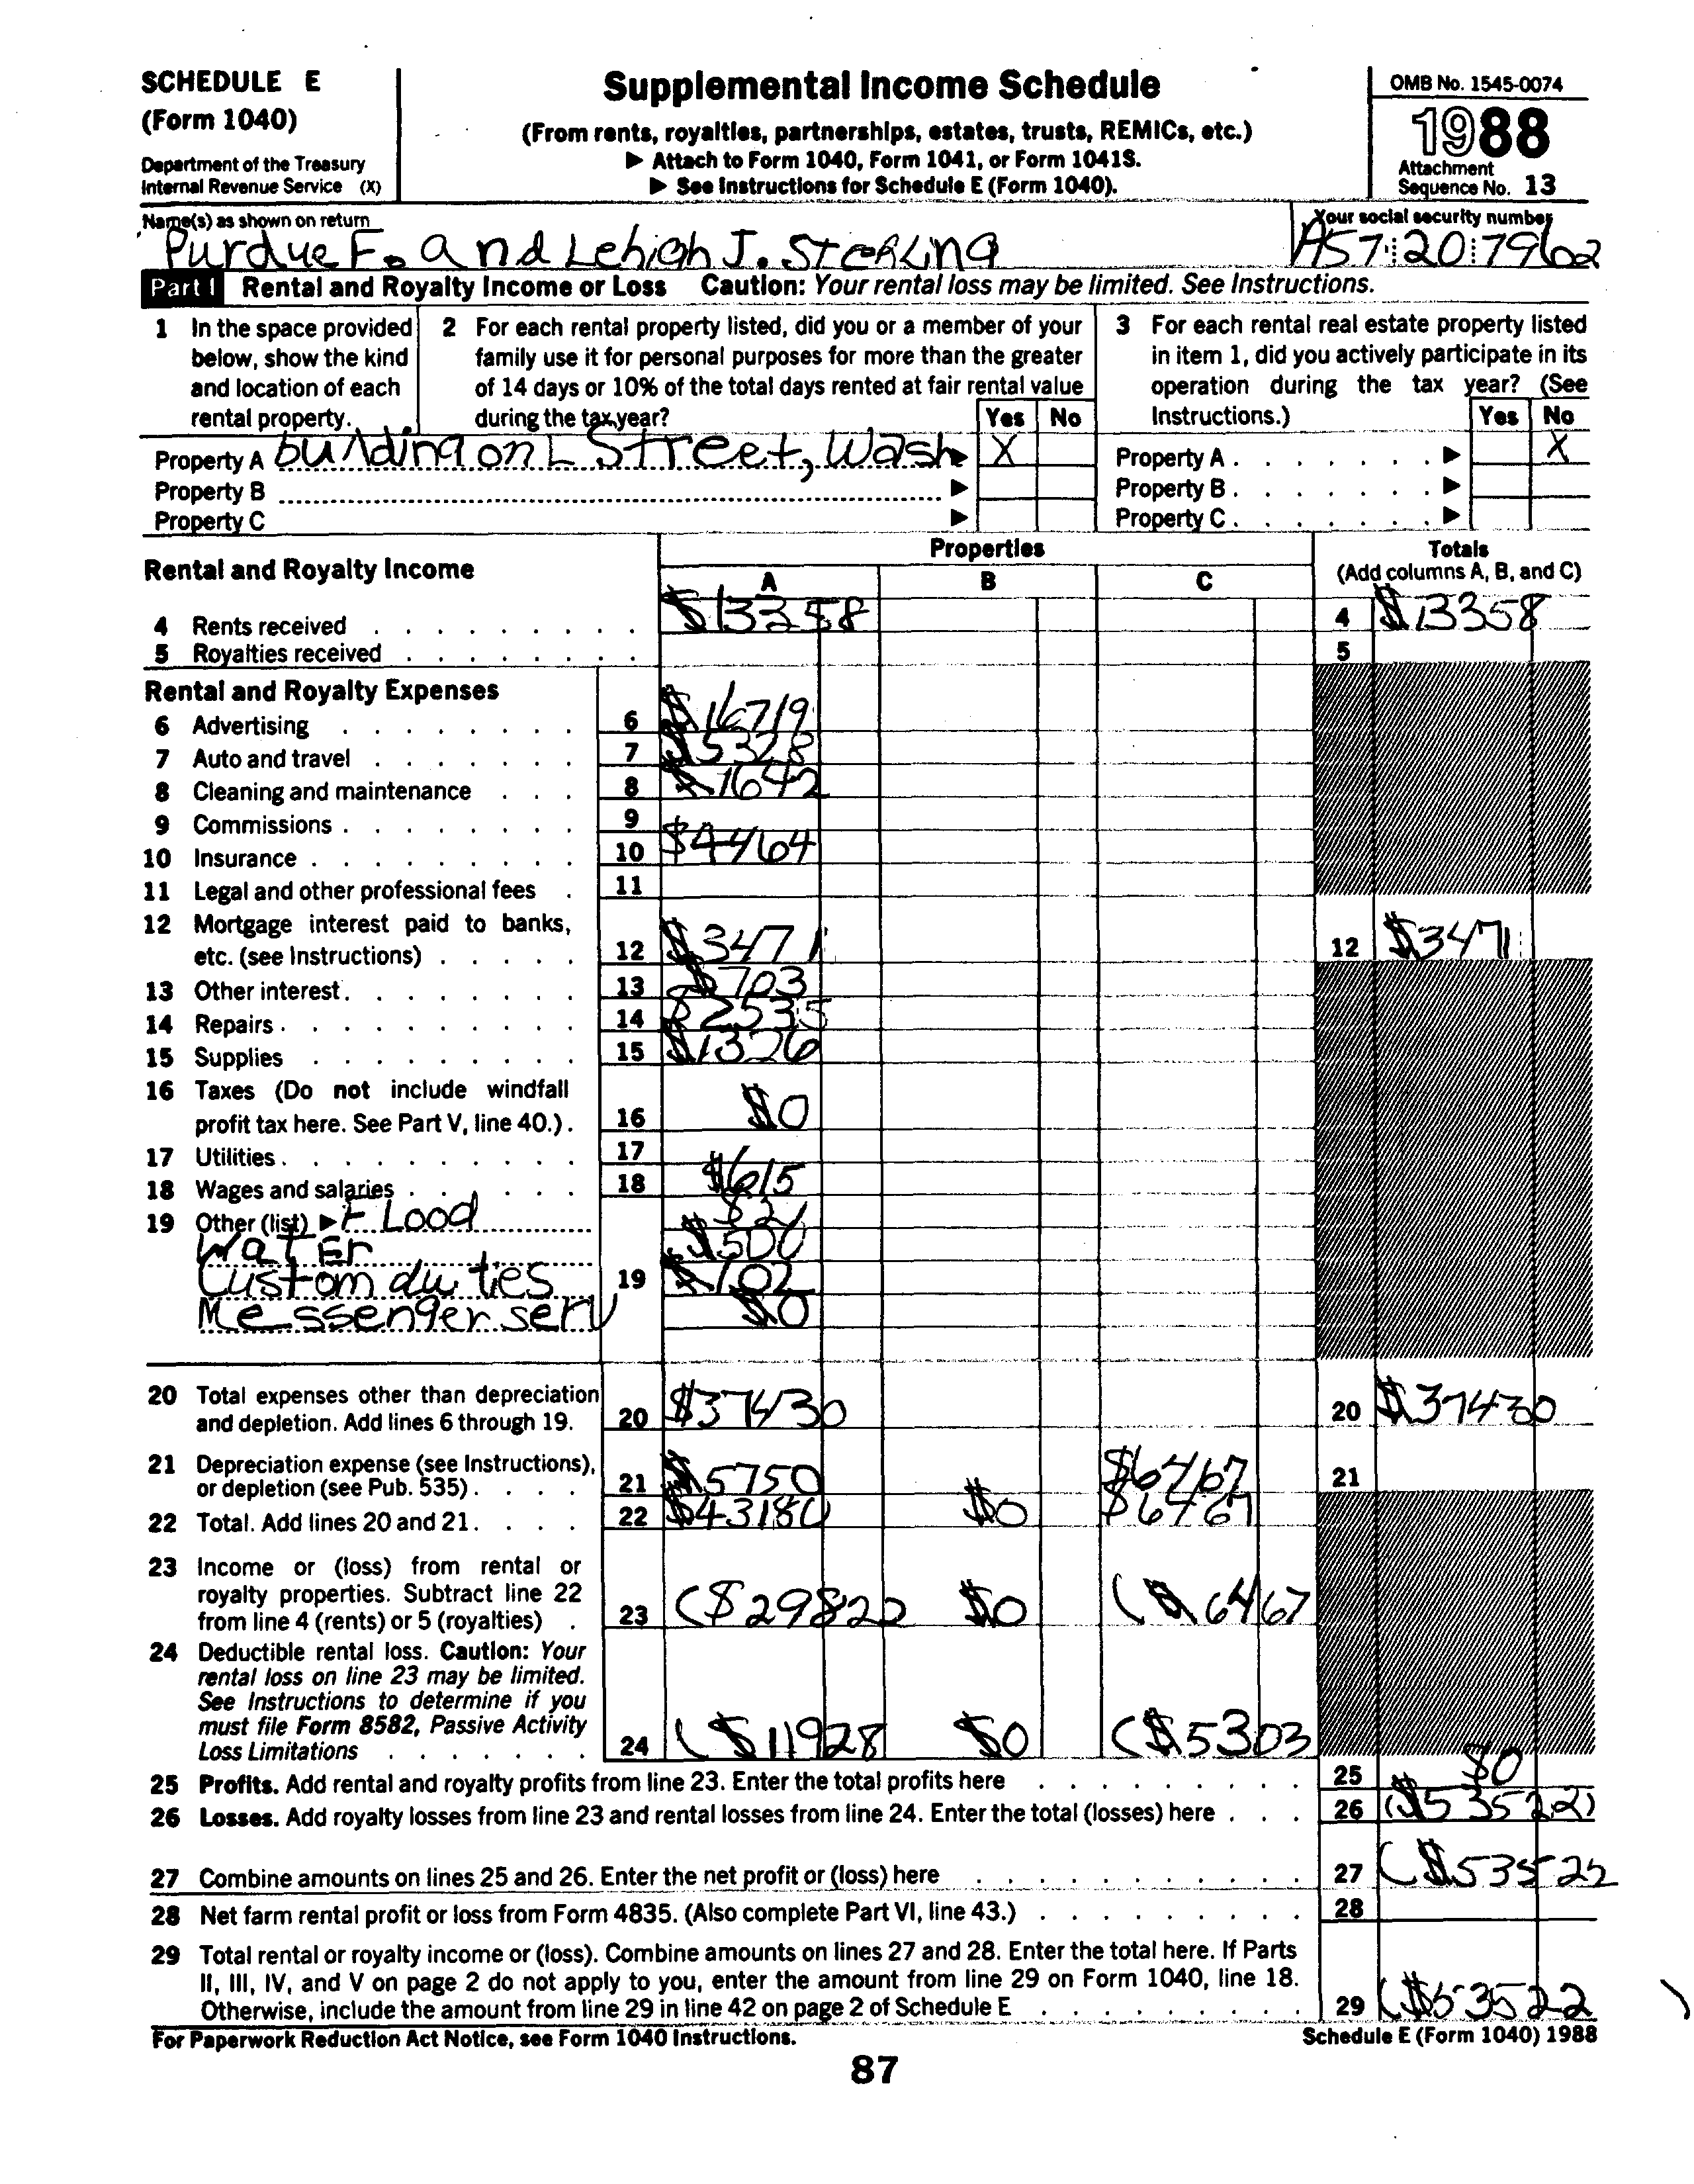 SCHEDULE E
(Form 1040)
Department of the Treasury
Internal Revenue Service (X)
Supplemental Income Schedule
(From rents, royalties, partnerships, estates, trusts, REMICs, etc.)
▶ Attach to Form 1040, Form 1041, or Form 1041S.
▶ See Instructions for Schedule E (Form 1040).
OMB No. 1545-0074
1988
Attachment
Sequence No. 13
Name(s) as shown on return
Purdue F. and Lehigh J. Sterling
Your social security number
A57 20 7962
Part I Rental and Royalty Income or Loss Caution: Your rental loss may be limited. See Instructions.
1 In the space provided below, show the kind and location of each rental property.
2 For each rental property listed, did you or a member of your family use it for personal purposes for more than the greater of 14 days or 10% of the total days rented at fair rental value during the tax year? Yes No
3 For each rental real estate property listed in item 1, did you actively participate in its operation during the tax year? (See Instructions.) Yes No
Property A building on L Street, Wash ▶ X
Property A . . . . . . . ▶ X
Property B ▶
Property B . . . . . . . ▶
Property C ▶
Property C . . . . . . . ▶
Rental and Royalty Income
Properties
A B C
Totals
(Add columns A, B, and C)
4 Rents received $13358 4 $13358
5 Royalties received 5
Rental and Royalty Expenses
6 Advertising 6 $16719
7 Auto and travel 7 $5328
8 Cleaning and maintenance 8 $1642
9 Commissions 9
10 Insurance 10 $4464
11 Legal and other professional fees 11
12 Mortgage interest paid to banks,
etc. (see Instructions) 12 $3471 12 $3471
13 Other interest 13 $703
14 Repairs 14 $2535
15 Supplies 15 $1326
16 Taxes (Do not include windfall
profit tax here. See Part V, line 40.) 16 $0
17 Utilities 17
18 Wages and salaries 18 $615
19 Other (list) ▶ Flood $21
Water $500
Custom duties 19 $102
Messenger serv $0
20 Total expenses other than depreciation
and depletion. Add lines 6 through 19. 20 $37430 20 $37430
21 Depreciation expense (see Instructions),
or depletion (see Pub. 535) 21 $5750 $6467 21
22 Total. Add lines 20 and 21 22 $43180 $0 $6467
23 Income or (loss) from rental or
royalty properties. Subtract line 22
from line 4 (rents) or 5 (royalties) 23 ($29822 $0 ($6467
24 Deductible rental loss. Caution: Your
rental loss on line 23 may be limited.
See Instructions to determine if you
must file Form 8582, Passive Activity
Loss Limitations 24 ($11928 $0 ($5303
25 Profits. Add rental and royalty profits from line 23. Enter the total profits here 25 $0
26 Losses. Add royalty losses from line 23 and rental losses from line 24. Enter the total (losses) here 26 ($53522)
27 Combine amounts on lines 25 and 26. Enter the net profit or (loss) here 27 ($53522
28 Net farm rental profit or loss from Form 4835. (Also complete Part VI, line 43.) 28
29 Total rental or royalty income or (loss). Combine amounts on lines 27 and 28. Enter the total here. If Parts
II, III, IV, and V on page 2 do not apply to you, enter the amount from line 29 on Form 1040, line 18.
Otherwise, include the amount from line 29 in line 42 on page 2 of Schedule E 29 ($53522 )
For Paperwork Reduction Act Notice, see Form 1040 Instructions.
Schedule E (Form 1040) 1988
87